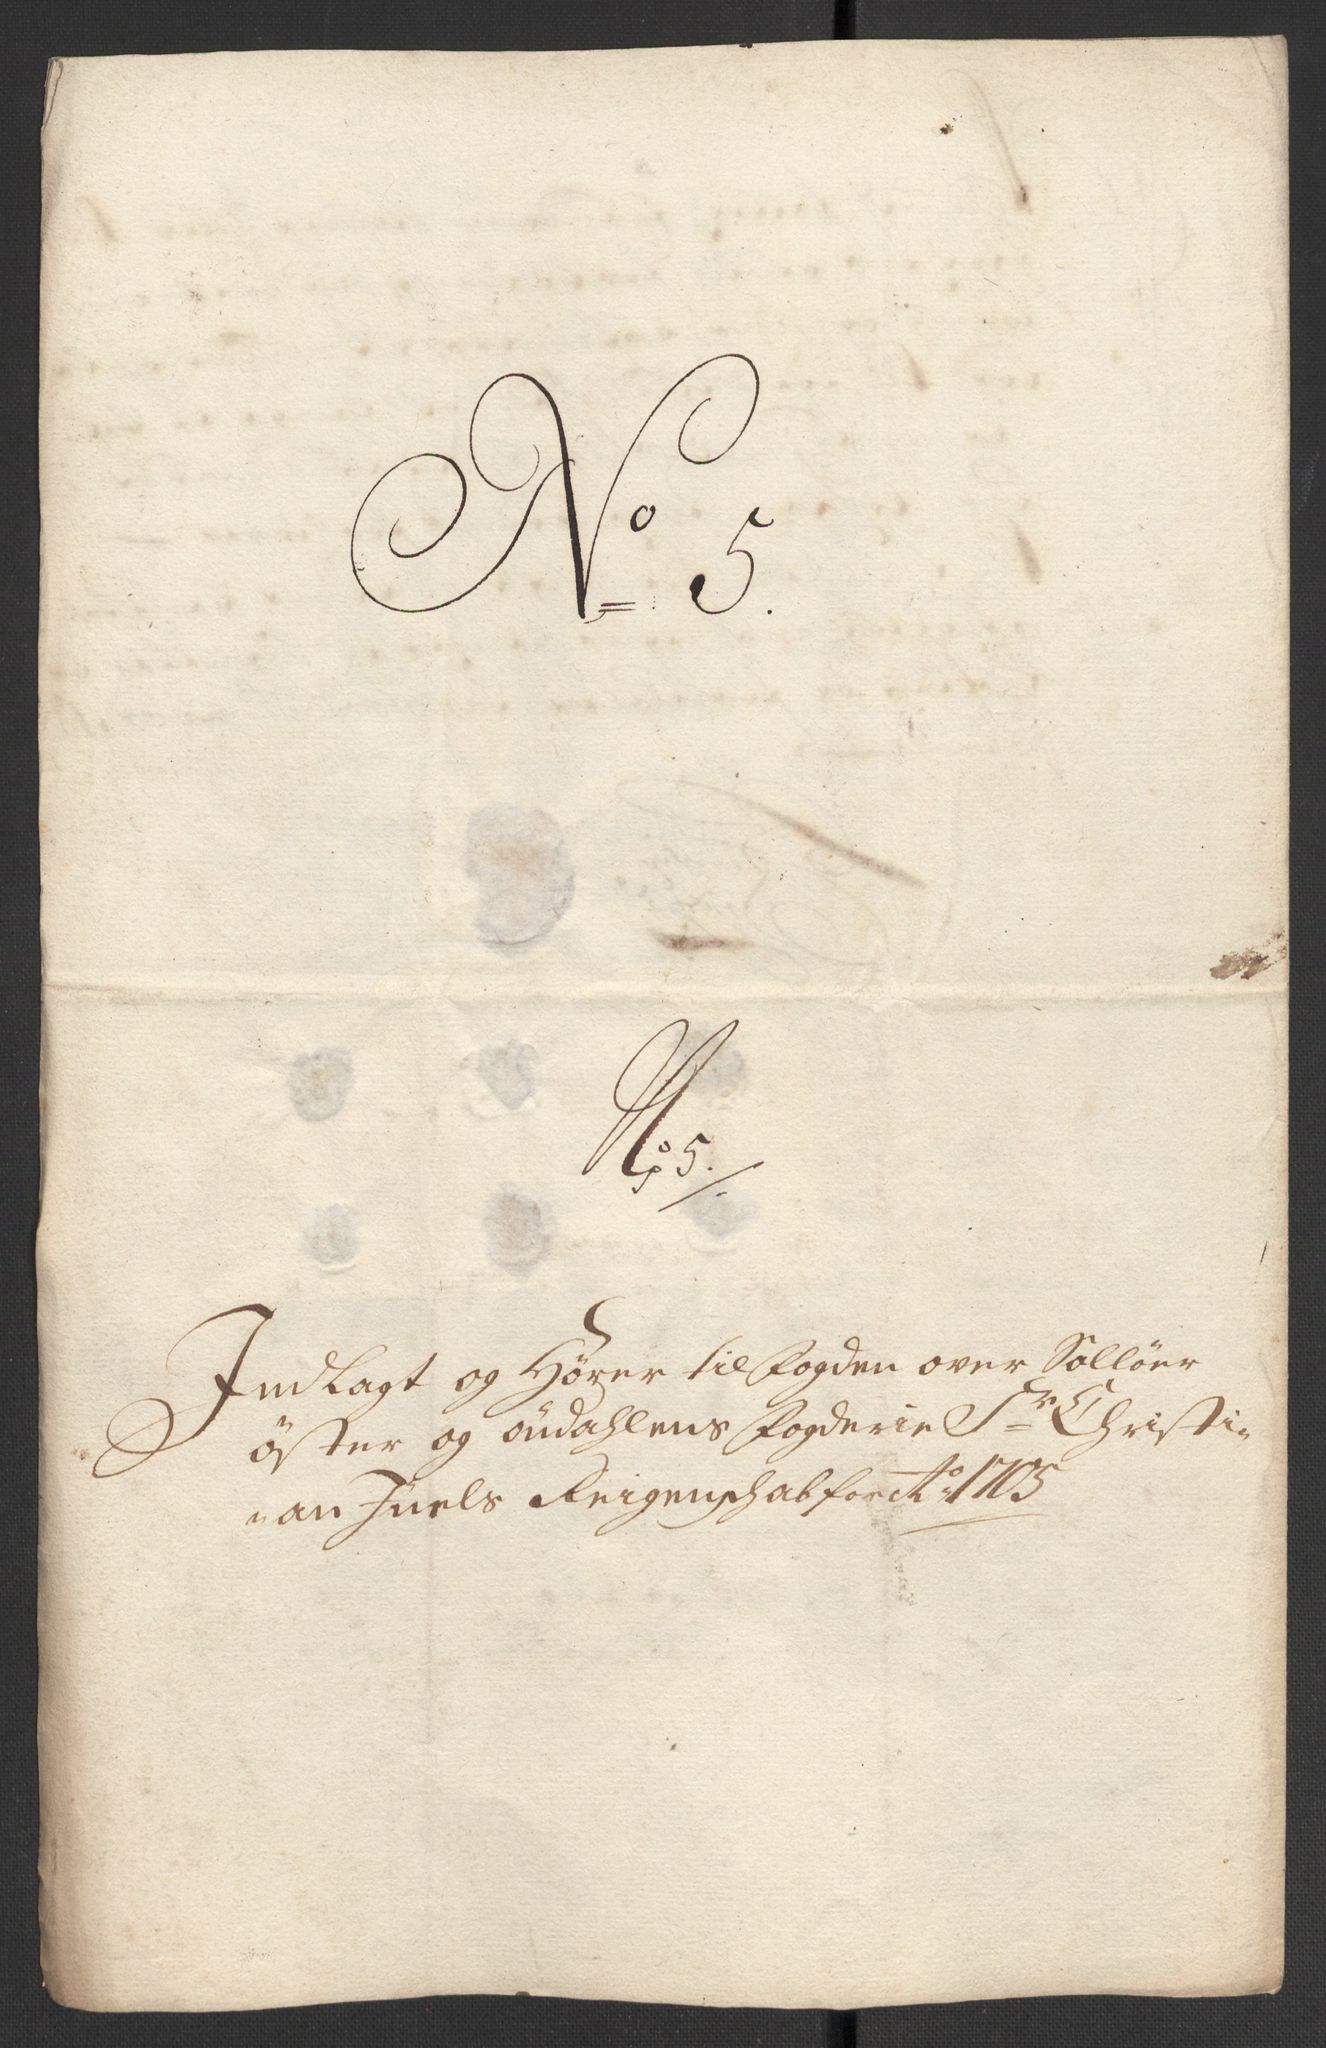 No 5.
No 5.
Indlagt og Hörer til Fogden over Sollöer
Öster og oudahlens Fogderie Sr Christi-
-an Juels Reigenschab for Ao 1705